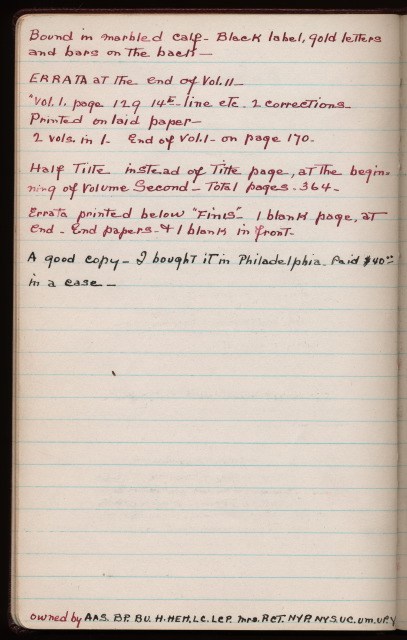 Bound in marbled calf - Black label, gold letters
and bars on the back -
ERRATA at the end of Vol. II -
"Vol. I. page 129 14E - line etc. 2 corrections -
Printed on laid paper -
2 vols. in 1. End of Vol. 1 - on page 170.
Half Title instead of Title page, at the begin-
ning of Volume Second - Total pages - 364 -
Errata printed below "Finis" - 1 blank page, at
end - End papers - & 1 blank in front.
A good copy - I bought it in Philadelphia. Paid $40.00
in a case -
owned by AAS. BP. BU. H. HEH. LC. LCP. Mrs. RCT. NYP. NYS. UC. UM. UP. Y